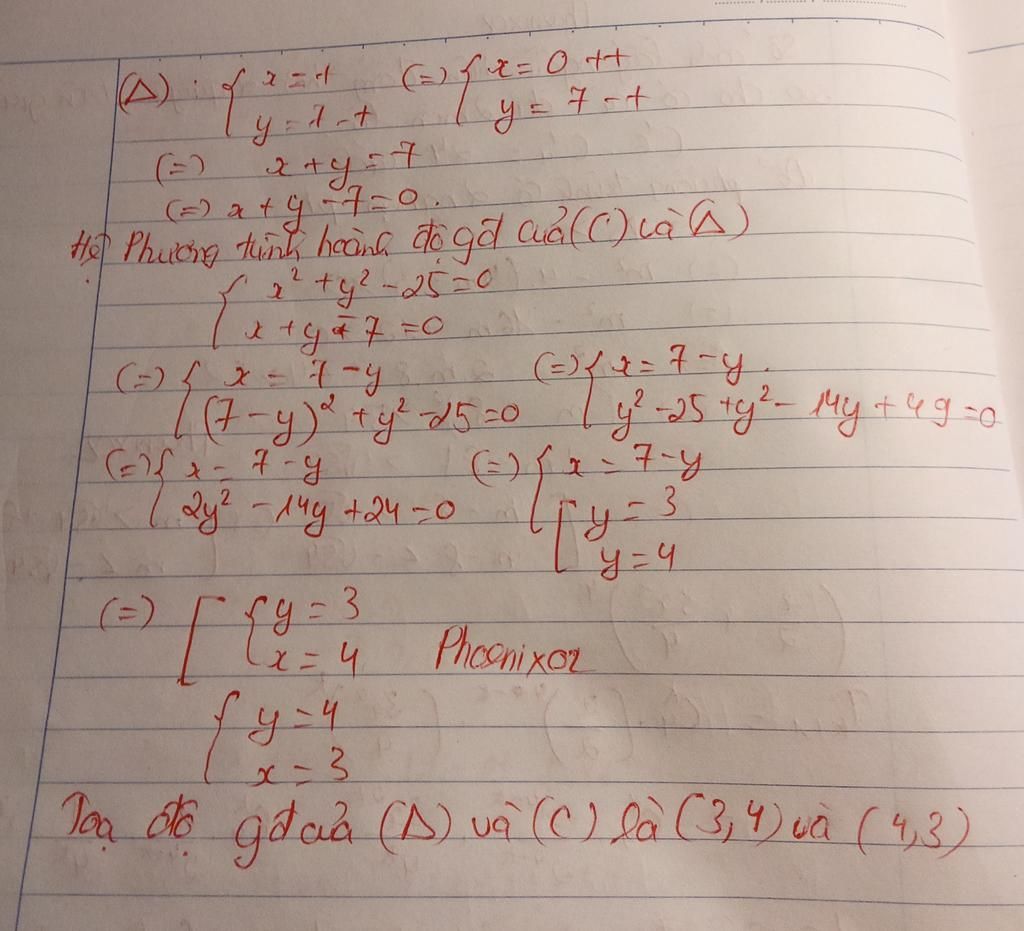 (Δ) : { x = t (=) { x = 0 + t
y = 7 - t y = 7 - t
(=) x + y = 7
(=) x + y - 7 = 0.
Hệ Phương trình hoành độ gđ của (C) và (Δ)
{ x² + y² - 25 = 0
x + y - 7 = 0
(=) { x = 7 - y (=) { x = 7 - y.
(7 - y)² + y² - 25 = 0 y² - 25 + y² - 14y + 49 = 0
(=) { x = 7 - y (=) { x = 7 - y
2y² - 14y + 24 = 0 [ y = 3
y = 4
(=) [ { y = 3
x = 4 Phoenixoz
{ y = 4
x = 3
Toạ độ gđ của (Δ) và (C) là (3,4) và (4,3)